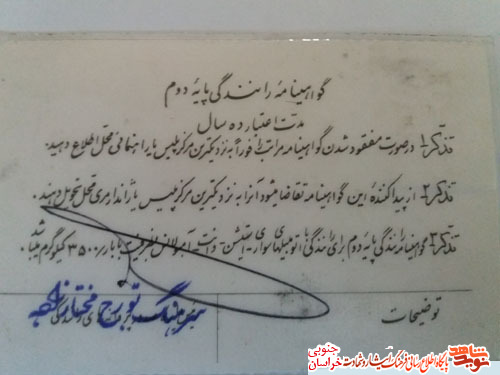 گواهینامه رانندگی پایه دوم
مدت اعتبار ده سال
تذکر۱ـ در صورت مفقود شدن گواهینامه مراتب را فوراً به نزدیکترین مرکز پلیس یا راهنمائی محل اطلاع دهید.
تذکر۲ـ از پیدا کننده این گواهینامه تقاضا میشود آنرا به نزدیکترین مرکز پلیس یا ژاندارمری محل تحویل دهید.
تذکر۳ـ گواهینامه رانندگی پایه دوم برای رانندگی با اتومبیلهای سواری استیشن ـ وانت ـ آمبولانس تا بار ۳۵۰۰ کیلوگرم میباشد
توضیحات
سرهنگ تورج مختار
شاهد
نوید
پایگاه اطلاع رسانی فرهنگ ایثار و شهادت
خراسان جنوبی